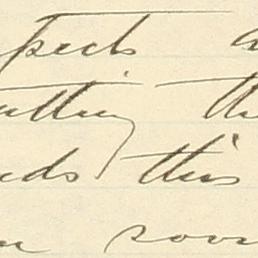 pects a
utting th
nds this
n soon